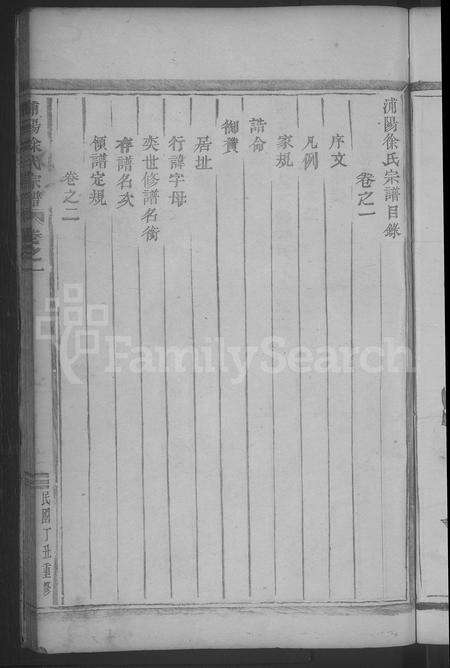 浦陽徐氏宗譜目錄
卷之一
序文
凡例
家規
誥命
御贊
居址
行諱字母
奕世修譜名銜
存譜名次
領譜定規
卷之二
浦陽徐氏宗譜 卷之一
民國丁丑重修
FamilySearch